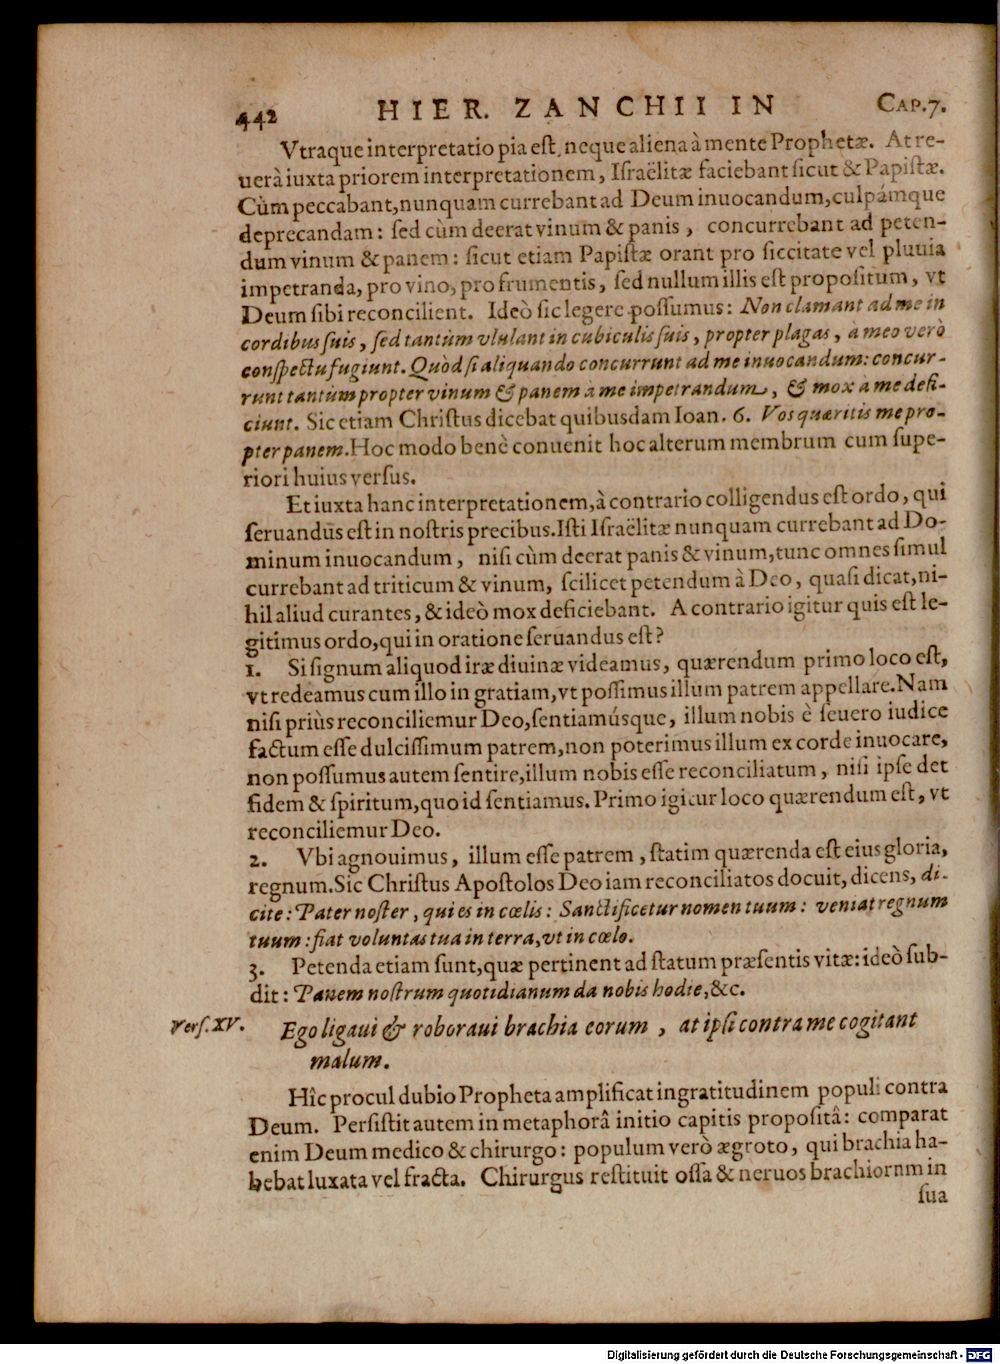 442 HIER. ZANCHII IN CAP.7.
Vtraque interpretatio pia est, neque aliena à mente Prophetæ. At re-
uerà iuxta priorem interpretationem, Israëlitæ faciebant sicut & Papistæ.
Cùm peccabant, nunquam currebant ad Deum inuocandum, culpámque
deprecandam: sed cùm deerat vinum & panis, concurrebant ad peten-
dum vinum & panem: sicut etiam Papistæ orant pro siccitate vel pluuia
impetranda, pro vino, pro frumentis, sed nullum illis est propositum, vt
Deum sibi reconcilient. Ideò sic legere possumus: Non clamant ad me in
cordibus suis, sed tantùm vlulant in cubiculis suis, propter plagas, a meo verò
conspectu fugiunt. Quòd si aliquando concurrunt ad me inuocandum: concur-
runt tantùm propter vinum & panem à me impetrandum, & mox à me defi-
ciunt. Sic etiam Christus dicebat quibusdam Ioan. 6. Vos quæritis me pro-
pter panem. Hoc modo benè conuenit hoc alterum membrum cum supe-
riori huius versus.
Et iuxta hanc interpretationem, à contrario colligendus est ordo, qui
seruandus est in nostris precibus. Isti Israëlitæ nunquam currebant ad Do-
minum inuocandum, nisi cùm deerat panis & vinum, tunc omnes simul
currebant ad triticum & vinum, scilicet petendum à Deo, quasi dicat, ni-
hil aliud curantes, & ideò mox deficiebant. A contrario igitur quis est le-
gitimus ordo, qui in oratione seruandus est?
1. Si signum aliquod iræ diuinæ videamus, quærendum primo loco est,
vt redeamus cum illo in gratiam, vt possimus illum patrem appellare. Nam
nisi priùs reconciliemur Deo, sentiamúsque, illum nobis è seuero iudice
factum esse dulcissimum patrem, non poterimus illum ex corde inuocare,
non possumus autem sentire, illum nobis esse reconciliatum, nisi ipse det
fidem & spiritum, quo id sentiamus. Primo igitur loco quærendum est, vt
reconciliemur Deo.
2. Vbi agnouimus, illum esse patrem, statim quærenda est eius gloria,
regnum. Sic Christus Apostolos Deo iam reconciliatos docuit, dicens, di-
cite: Pater noster, qui es in cœlis: Sanctificetur nomen tuum: veniat regnum
tuum: fiat voluntas tua in terra, vt in cœlo.
3. Petenda etiam sunt, quæ pertinent ad statum præsentis vitæ: ideò sub-
dit: Panem nostrum quotidianum da nobis hodie, &c.
Vers. XV. Ego ligaui & roboraui brachia eorum, at ipsi contra me cogitant
malum.
Hîc procul dubio Propheta amplificat ingratitudinem populi contra
Deum. Persistit autem in metaphorâ initio capitis propositâ: comparat
enim Deum medico & chirurgo: populum verò ægroto, qui brachia ha-
bebat luxata vel fracta. Chirurgus restituit ossa & neruos brachiornm in
sua
Digitalisierung gefördert durch die Deutsche Forschungsgemeinschaft - DFG